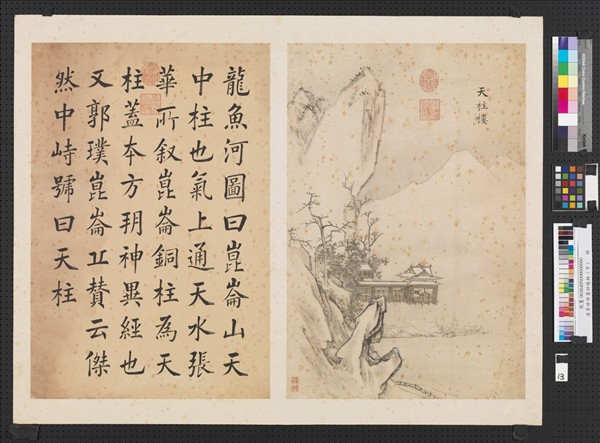 天柱樓
龍魚河圖曰崑崙山天
中柱也氣上通天水張
華所叙崑崙銅柱為天
柱蓋本方朔神異經也
又郭璞崑崙丘贊云傑
然中峙號曰天柱
13